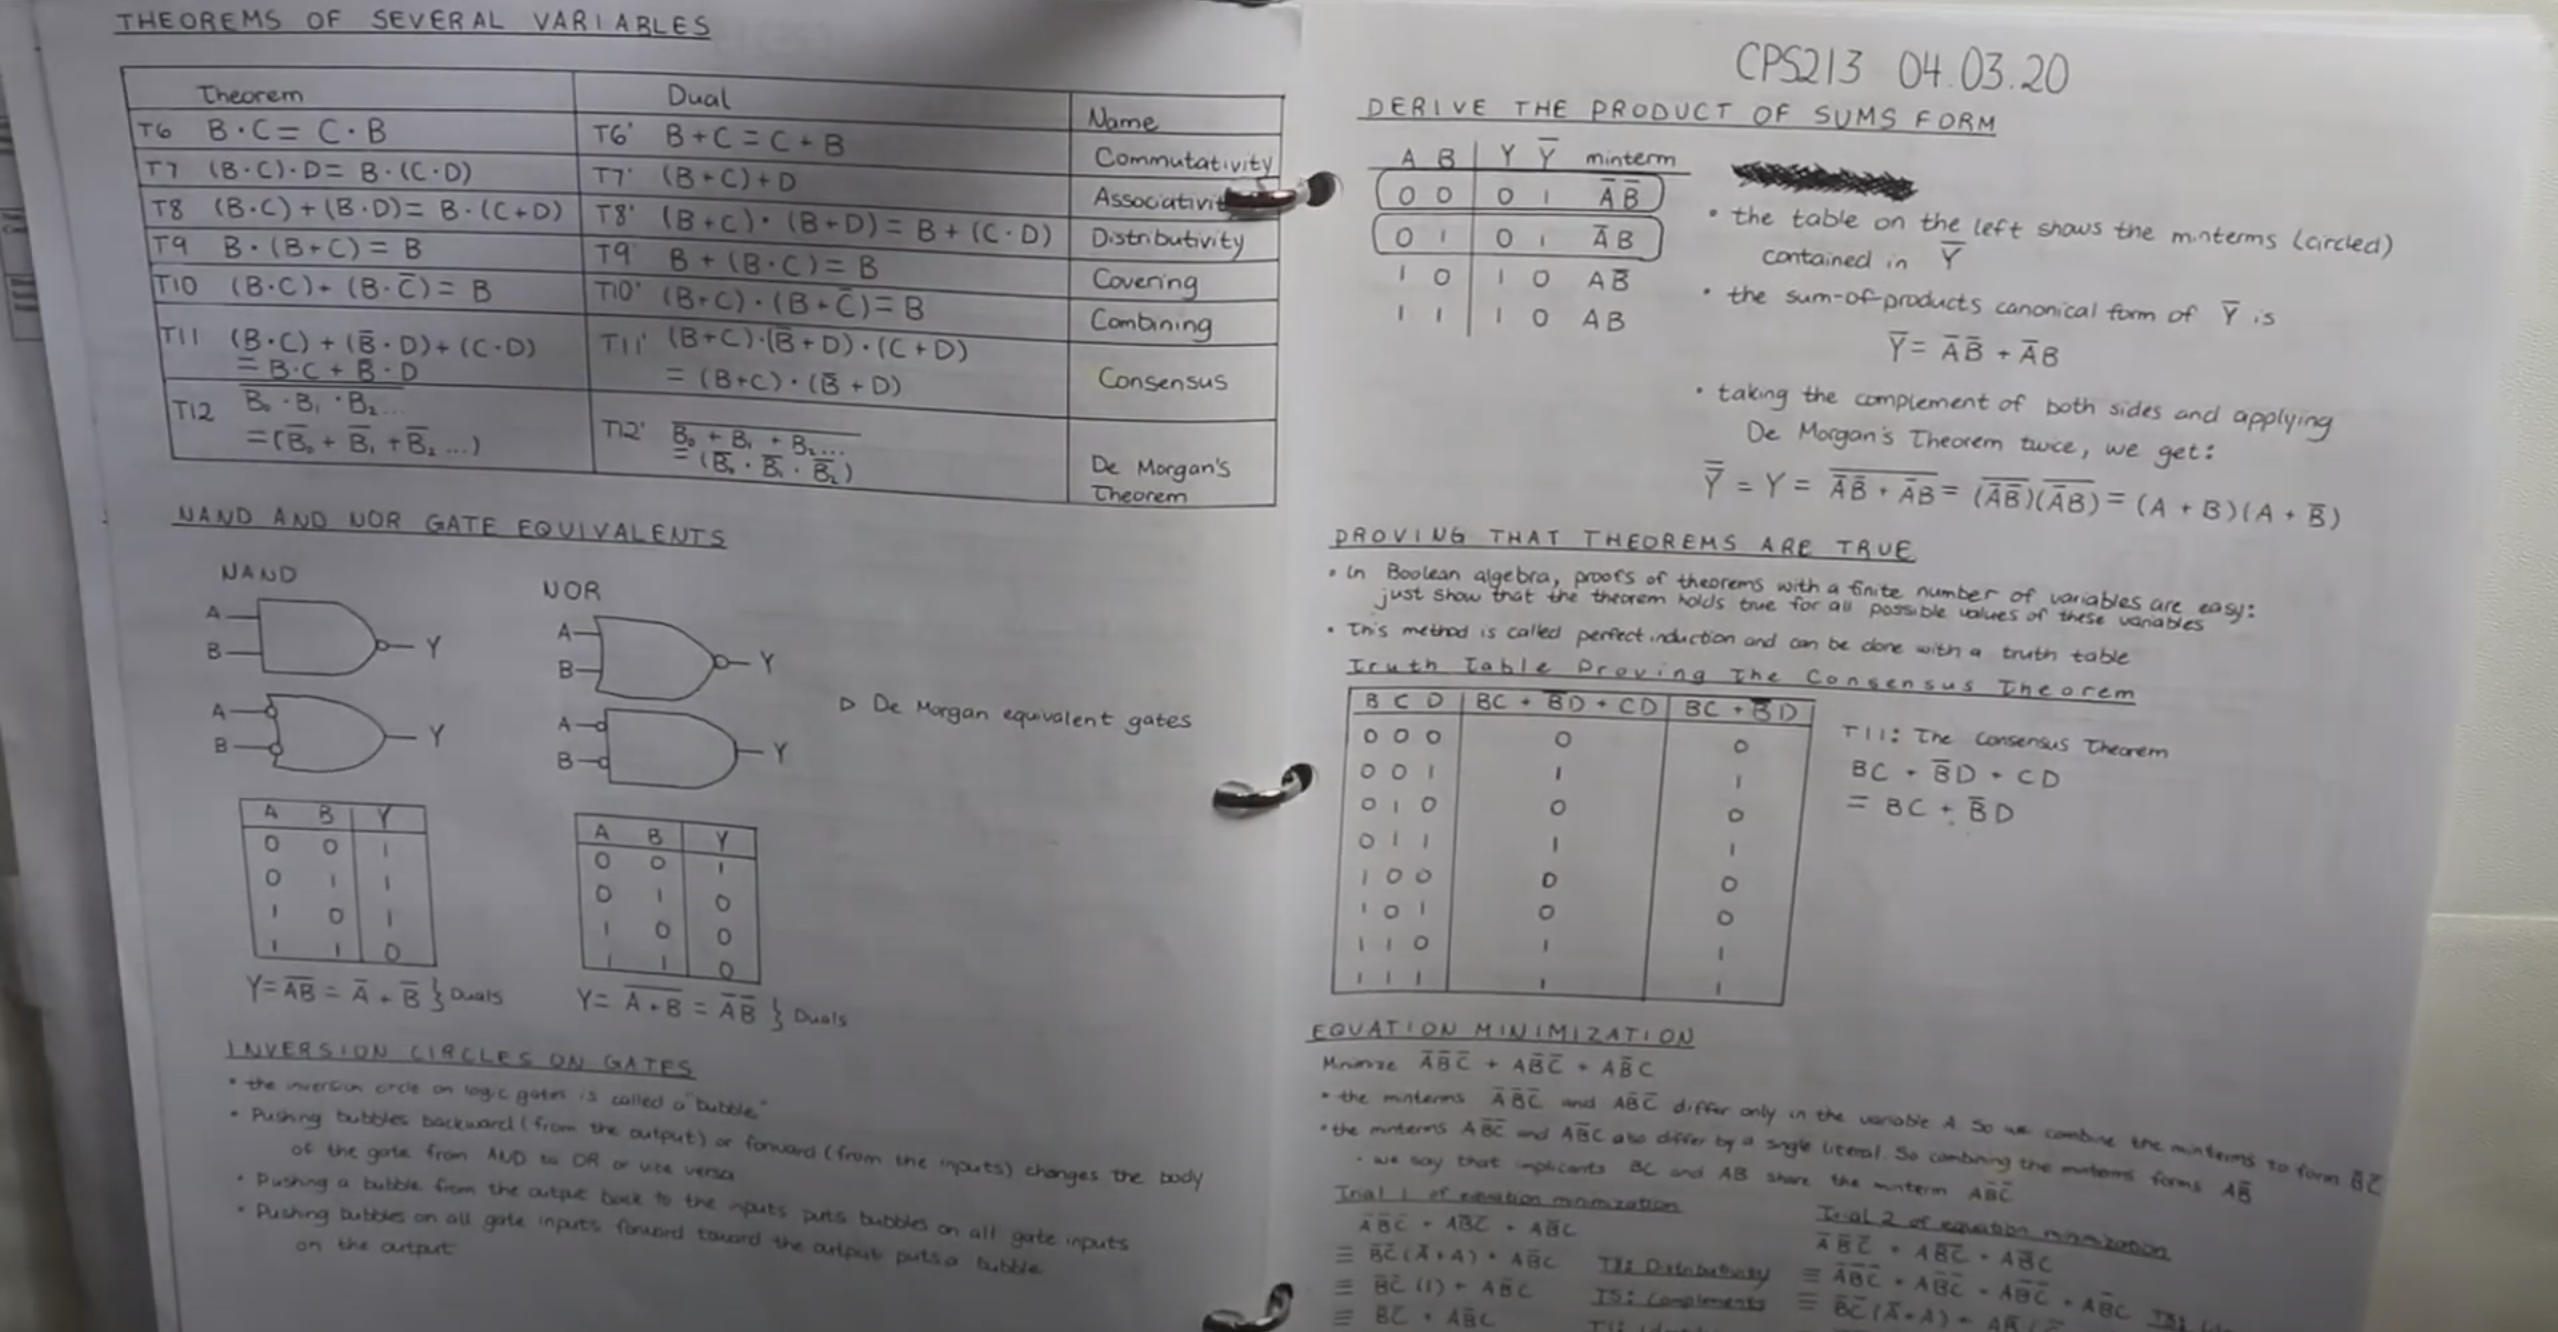 THEOREMS OF SEVERAL VARIABLES
Theorem Dual Name
T6 B·C = C·B T6' B+C = C+B Commutativity
T7 (B·C)·D = B·(C·D) T7' (B+C)+D Associativit
T8 (B·C)+(B·D) = B·(C+D) T8' (B+C)·(B+D) = B+(C·D) Distributivity
T9 B·(B+C) = B T9' B+(B·C) = B Covering
T10 (B·C)+(B·C̅) = B T10' (B+C)·(B+C̅) = B Combining
T11 (B·C)+(B̅·D)+(C·D) T11' (B+C)·(B̅+D)·(C+D) Consensus
= B·C + B̅·D = (B+C)·(B̅+D)
T12 B̅₀̅·̅B̅₁̅·̅B̅₂̅... T12' B̅₀̅+̅B̅₁̅+̅B̅₂̅... De Morgan's
=(B̅₀+B̅₁+B̅₂...) =(B̅₀·B̅₁·B̅₂) Theorem
NAND AND NOR GATE EQUIVALENTS
NAND NOR
A B Y A B Y
A B Y A B Y
▷ De Morgan equivalent gates
A B Y
0 0 1
0 1 1
1 0 1
1 1 0
Y = A̅B̅ = A̅ + B̅ } Duals
A B Y
0 0 1
0 1 0
1 0 0
1 1 0
Y = A̅+̅B̅ = A̅ B̅ } Duals
INVERSION CIRCLES ON GATES
• the inversion circle on logic gates is called a "bubble"
• Pushing bubbles backward (from the output) or forward (from the inputs) changes the body
of the gate from AND to OR or vice versa
• Pushing a bubble from the output back to the inputs puts bubbles on all gate inputs
• Pushing bubbles on all gate inputs forward toward the output puts a bubble
on the output
CPS213 04.03.20
DERIVE THE PRODUCT OF SUMS FORM
A B Y Y̅ minterm
0 0 0 1 A̅ B̅
0 1 0 1 A̅ B
1 0 1 0 A B̅
1 1 1 0 A B
• the table on the left shows the minterms (circled)
contained in Y̅
• the sum-of-products canonical form of Y̅ is
Y̅ = A̅ B̅ + A̅ B
• taking the complement of both sides and applying
De Morgan's Theorem twice, we get:
Y̿ = Y = \overline{A̅ B̅ + A̅ B} = (\overline{A̅ B̅})(\overline{A̅ B}) = (A + B)(A + B̅)
PROVING THAT THEOREMS ARE TRUE
• In Boolean algebra, proofs of theorems with a finite number of variables are easy:
just show that the theorem holds true for all possible values of these variables
• This method is called perfect induction and can be done with a truth table
Truth Table Proving The Consensus Theorem
B C D BC + B̅D + CD BC + B̅D
0 0 0 0 0
0 0 1 1 1
0 1 0 0 0
0 1 1 1 1
1 0 0 0 0
1 0 1 0 0
1 1 0 1 1
1 1 1 1 1
T11: The Consensus Theorem
BC + B̅D + CD
= BC + B̅D
EQUATION MINIMIZATION
Minimize A̅B̅C̅ + AB̅C̅ + AB̅C
• the minterms A̅B̅C̅ and AB̅C̅ differ only in the variable A. So we combine the minterms to form B̅C̅
• the minterms AB̅C̅ and AB̅C also differ by a single literal. So combining the minterms forms AB̅
- we say that implicants BC and AB share the minterm AB̅C̅
Trial 1 of equation minimization
A̅B̅C̅ + AB̅C̅ + AB̅C
≡ B̅C̅(A̅+A) + AB̅C T8: Distributivity
≡ B̅C̅(1) + AB̅C T5: Complements
≡ B̅C̅ + AB̅C
Trial 2 of equation minimization
A̅B̅C̅ + AB̅C̅ + AB̅C
≡ A̅B̅C̅ + AB̅C̅ + AB̅C̅ + AB̅C
≡ B̅C̅(A̅+A) +